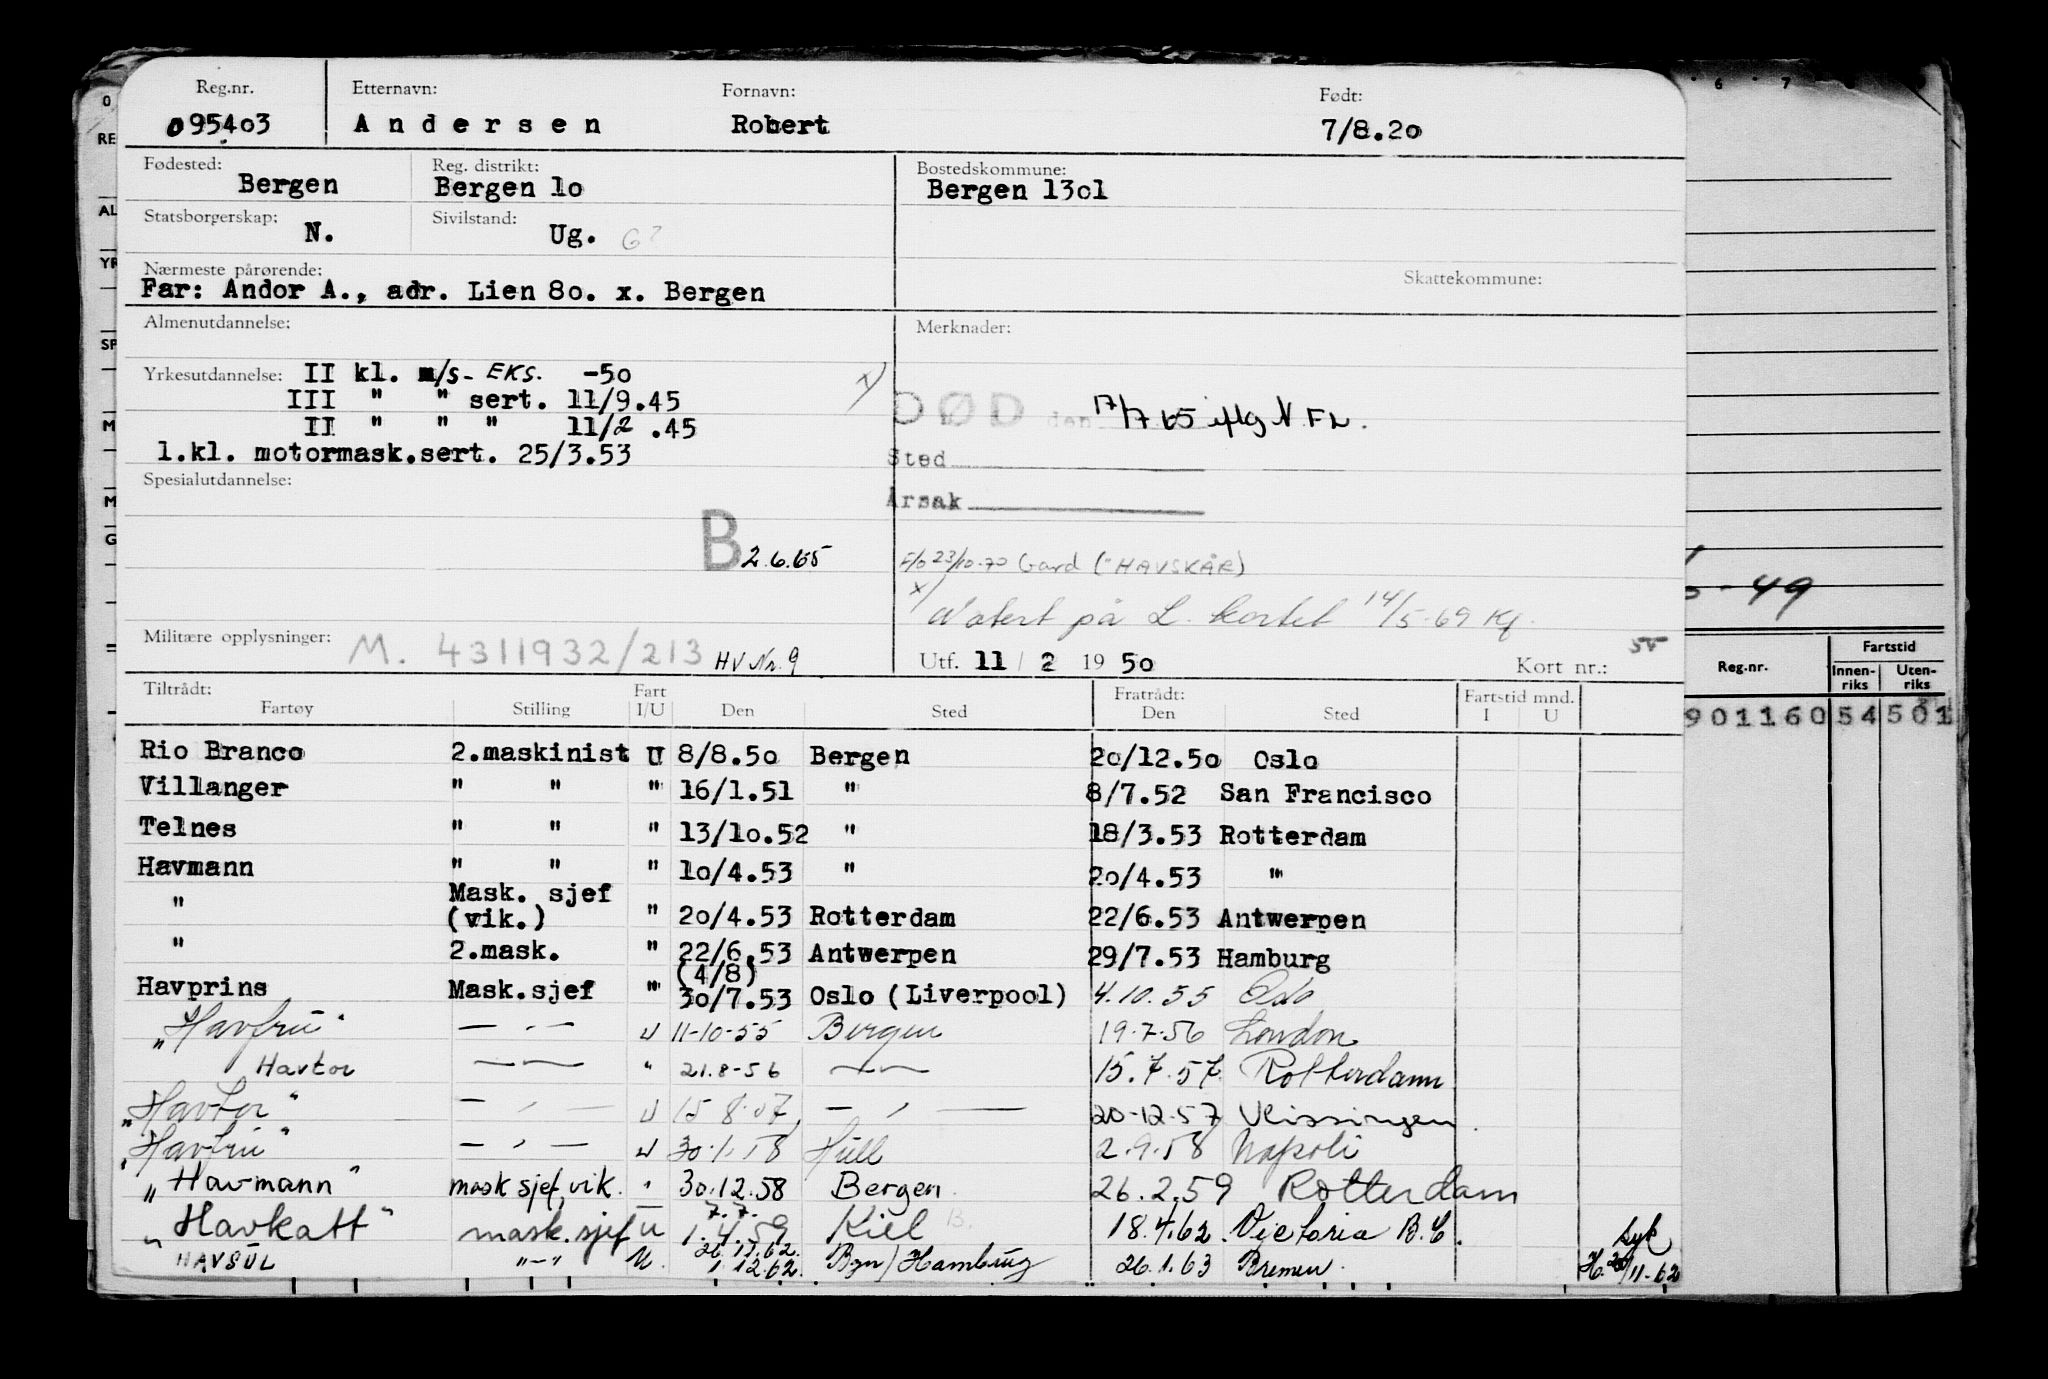 Reg.nr. Etternavn: Fornavn: Født:
095403 Andersen Robert 7/8.20
Fødested: Reg. distrikt: Bostedskommune:
Bergen Bergen 10 Bergen 1301
Statsborgerskap: Sivilstand:
N. Ug. G?
Nærmeste pårørende: Skattekommune:
Far: Andor A., adr. Lien 80. x. Bergen
Almenutdannelse: Merknader:
Yrkesutdannelse: II kl. m/s- EKS. -50 x)
III " " sert. 11/9.45
DØD den 17/7 65 iflg N.FL.
II " " " 11/2 .45
1.kl. motormask.sert. 25/3.53
Sted
Spesialutdannelse:
Årsak
B 2.6.65
23/10-70 Gard ("HAVSKÅR)
x) Notert på L. kortet 14/5-69
Militære opplysninger: M. 4311932/213 HV Nr. 9
Utf. 11 / 2 19 50 Kort nr.:
Tiltrådt: Fart Fratrådt: Fartstid mnd.
Fartøy Stilling I/U Den Sted Den Sted I U
Rio Branco 2.maskinist U 8/8.50 Bergen 20/12.50 Oslo
Villanger " " " 16/1.51 " 8/7.52 San Francisco
Telnes " " " 13/10.52 " 18/3.53 Rotterdam
Havmann " " " 10/4.53 " 20/4.53 "
" Mask. sjef (vik.) " 20/4.53 Rotterdam 22/6.53 Antwerpen
" 2.mask. " 22/6.53 Antwerpen 29/7.53 Hamburg
Havprins Mask.sjef " (4/8) 30/7.53 Oslo (Liverpool) 4.10.55 Oslo
"Havfru" — " — U 11-10-55 Bergen 19.7.56 London
Havtor — — " 21.8-56 — — 15.7.57 Rotterdam
"Havtor" — " — U 15 8.57 — " — 20-12-57 Vlissingen
"Havfru" — " — U 30.1.58 Hull 2.9.58 Napoli
"Havmann" mask sjef, vik. " 30.12.58 Bergen 26.2.59 Rotterdam
"Havkatt" mask.sjef U 7.7. 1.4.59 Kiel 18.4.62 Victoria B.C. syk
HAVSUL "—" U. 26.11.62. 1.12.62. Bgn/Hamburg 26.1.63 Bremen. H. 20/11-62
0
RE
AL
YR
SP
M
M
G
6 7
-49
Reg.nr. Fartstid
Innen-riks Uten-riks
901160 54 501